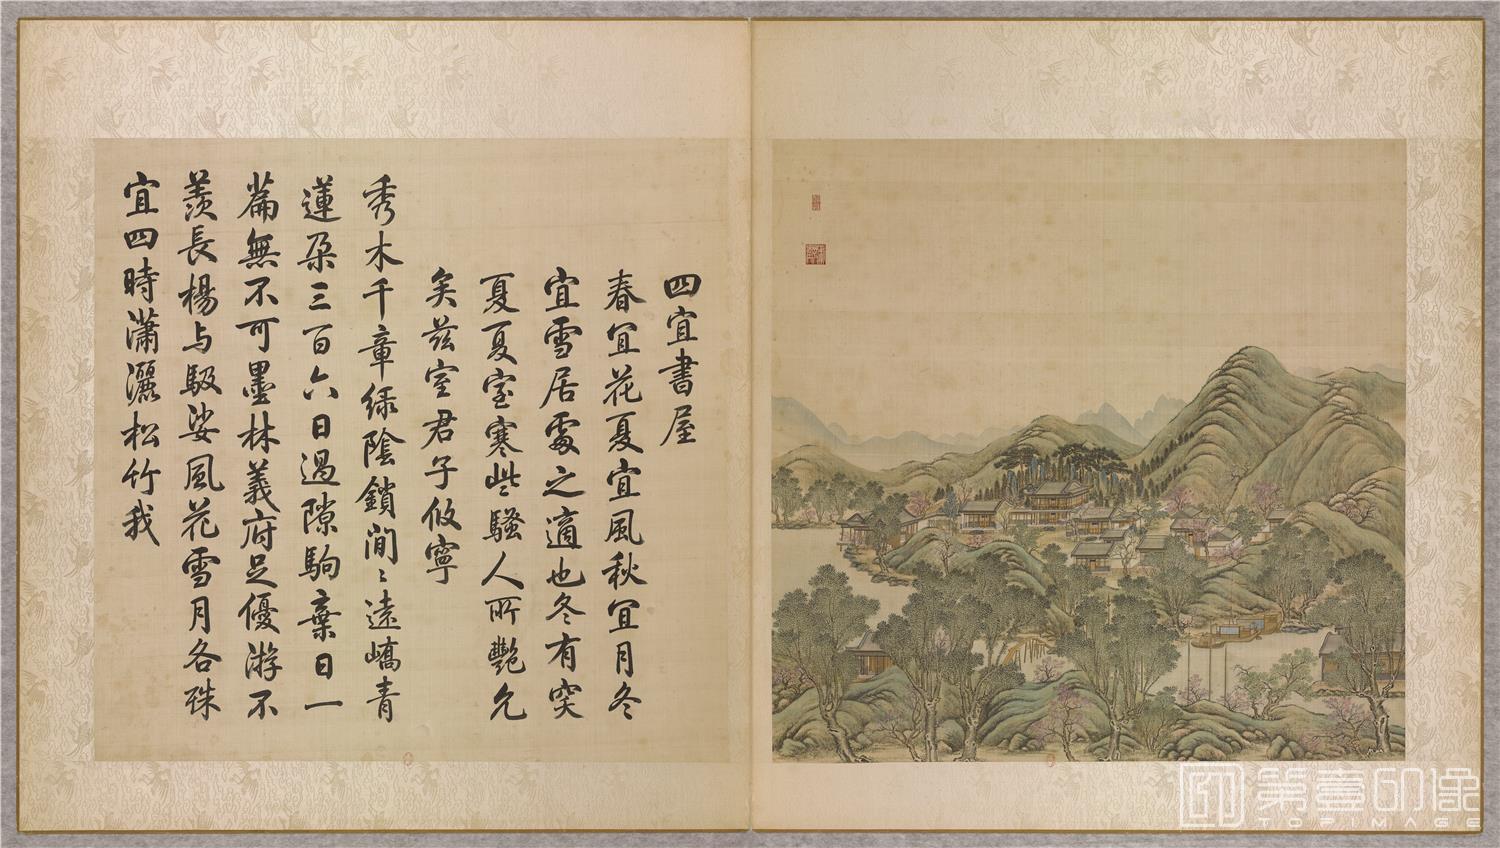 四宜書屋
春宜花夏宜風秋宜月冬
宜雪居處之適也冬有突
夏夏室寒些騷人所艷允
矣茲室君子攸寧
秀木千章緑陰鎖間〻遠嶠青
蓮朶三百六日過隙駒棄日一
篇無不可墨林義府足優游不
羨長楊与馺娑風花雪月各殊
宜四時瀟灑松竹我
第壹印像
TOPIMAGE